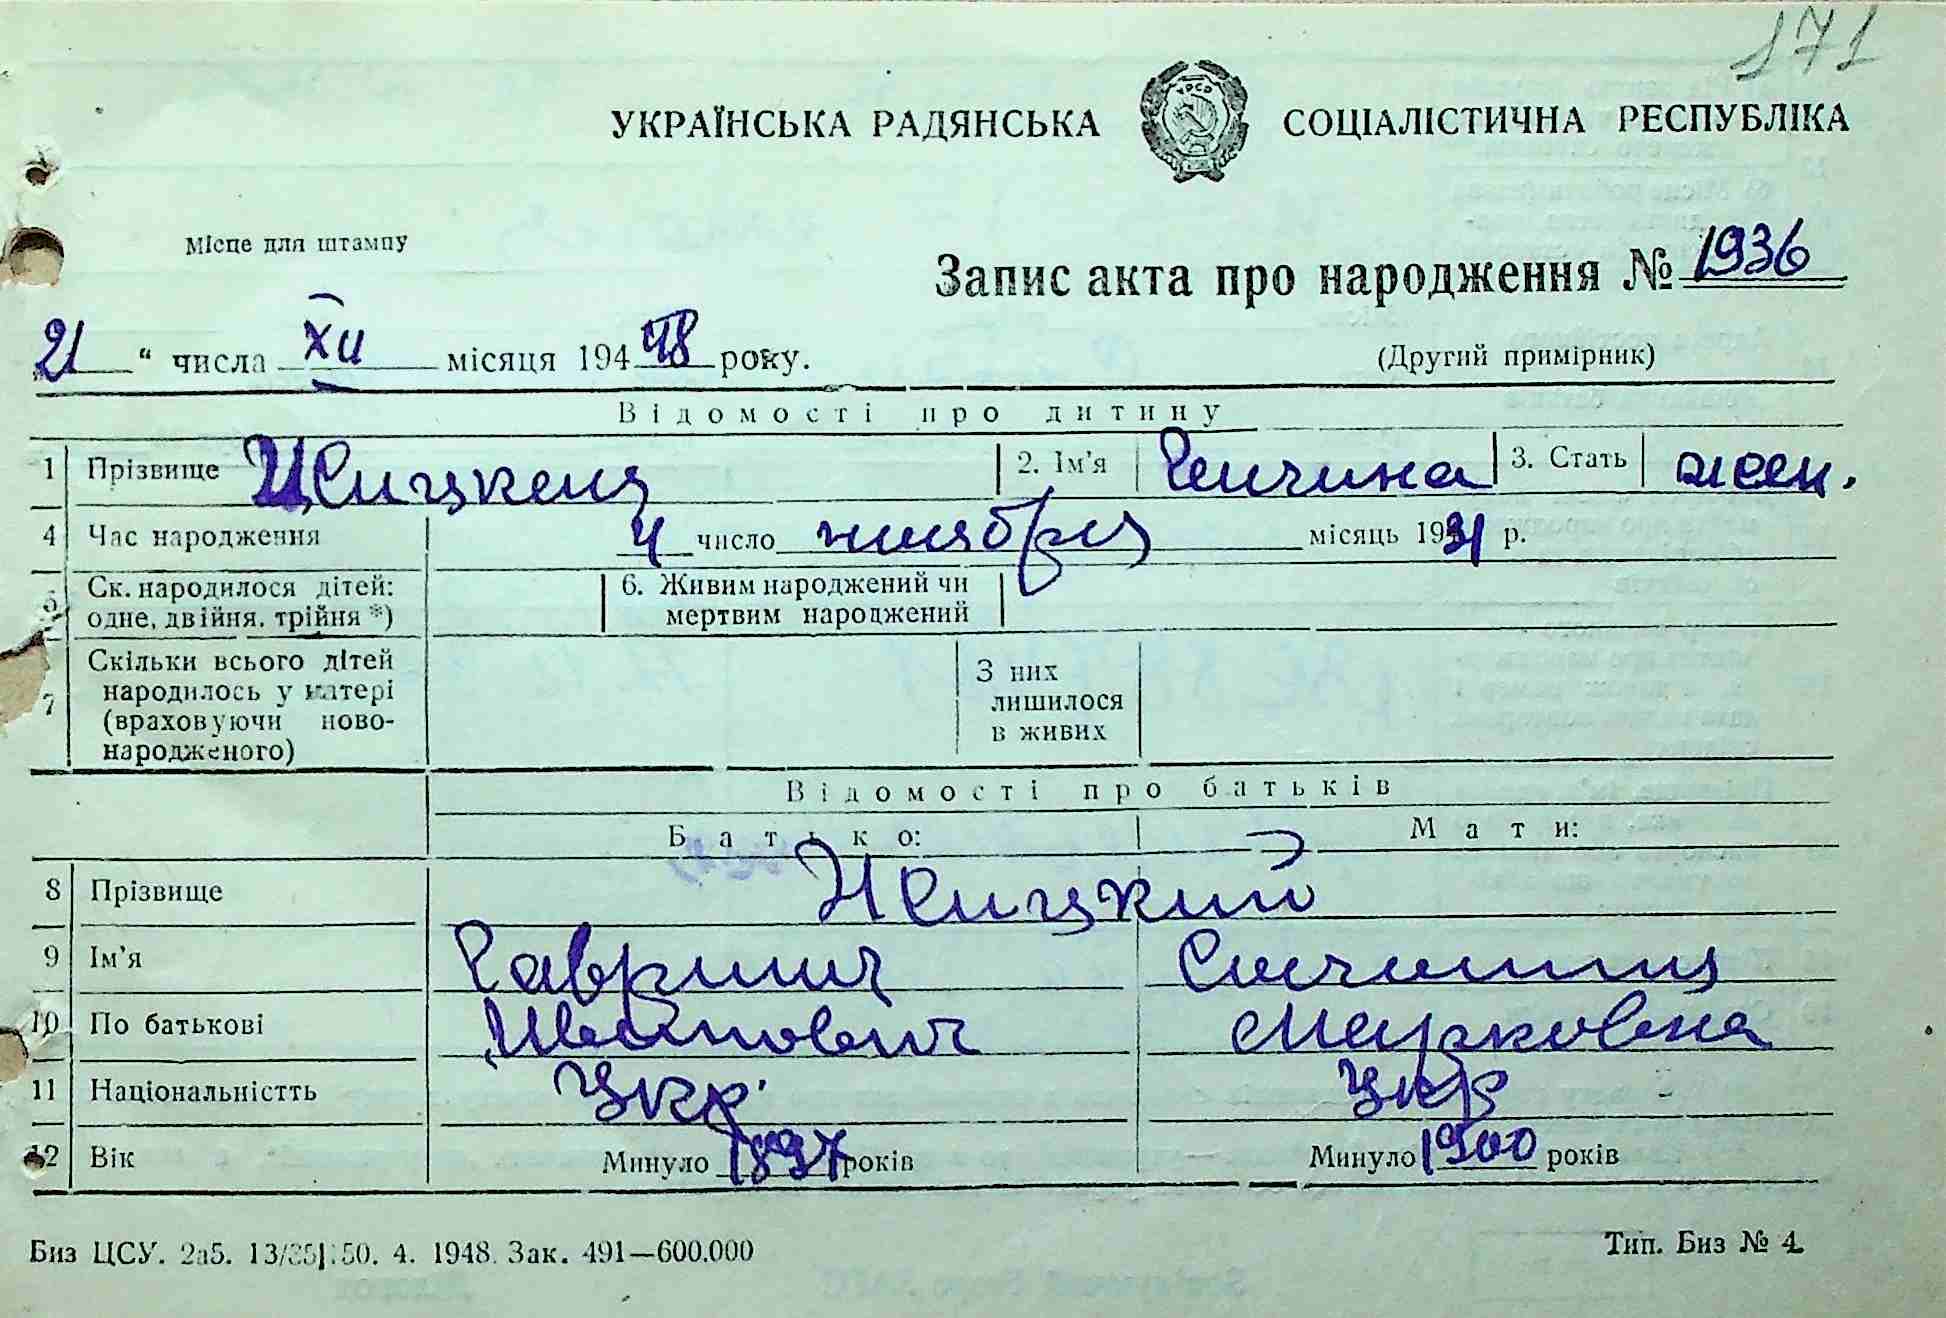 171
УКРАЇНСЬКА РАДЯНСЬКА СОЦІАЛІСТИЧНА РЕСПУБЛІКА
Місце для штампу
Запис акта про народження № 1936
21 “ числа XII місяця 194 48 року.
(Другий примірник)
Відомості про дитину
1 Прізвище 2. Ім'я 3. Стать жен.
4 Час народження 4 число ноября місяць 1931 р.
5 Ск. народилося дітей: одне, двійня, трійня *) 6. Живим народжений чи мертвим народжений
7 Скільки всього дітей народилось у матері (враховуючи ново-народженого) З них лишилося в живих
Відомості про батьків
Батько: Мати:
8 Прізвище
9 Ім'я Гавриил
10 По батькові Иванович Марковна
11 Національністть Укр. Укр
12 Вік Минуло 1897 років Минуло 1900 років
Биз ЦСУ. 2а5. 13/35|.50. 4. 1948. Зак. 491—600.000
Тип. Биз № 4.